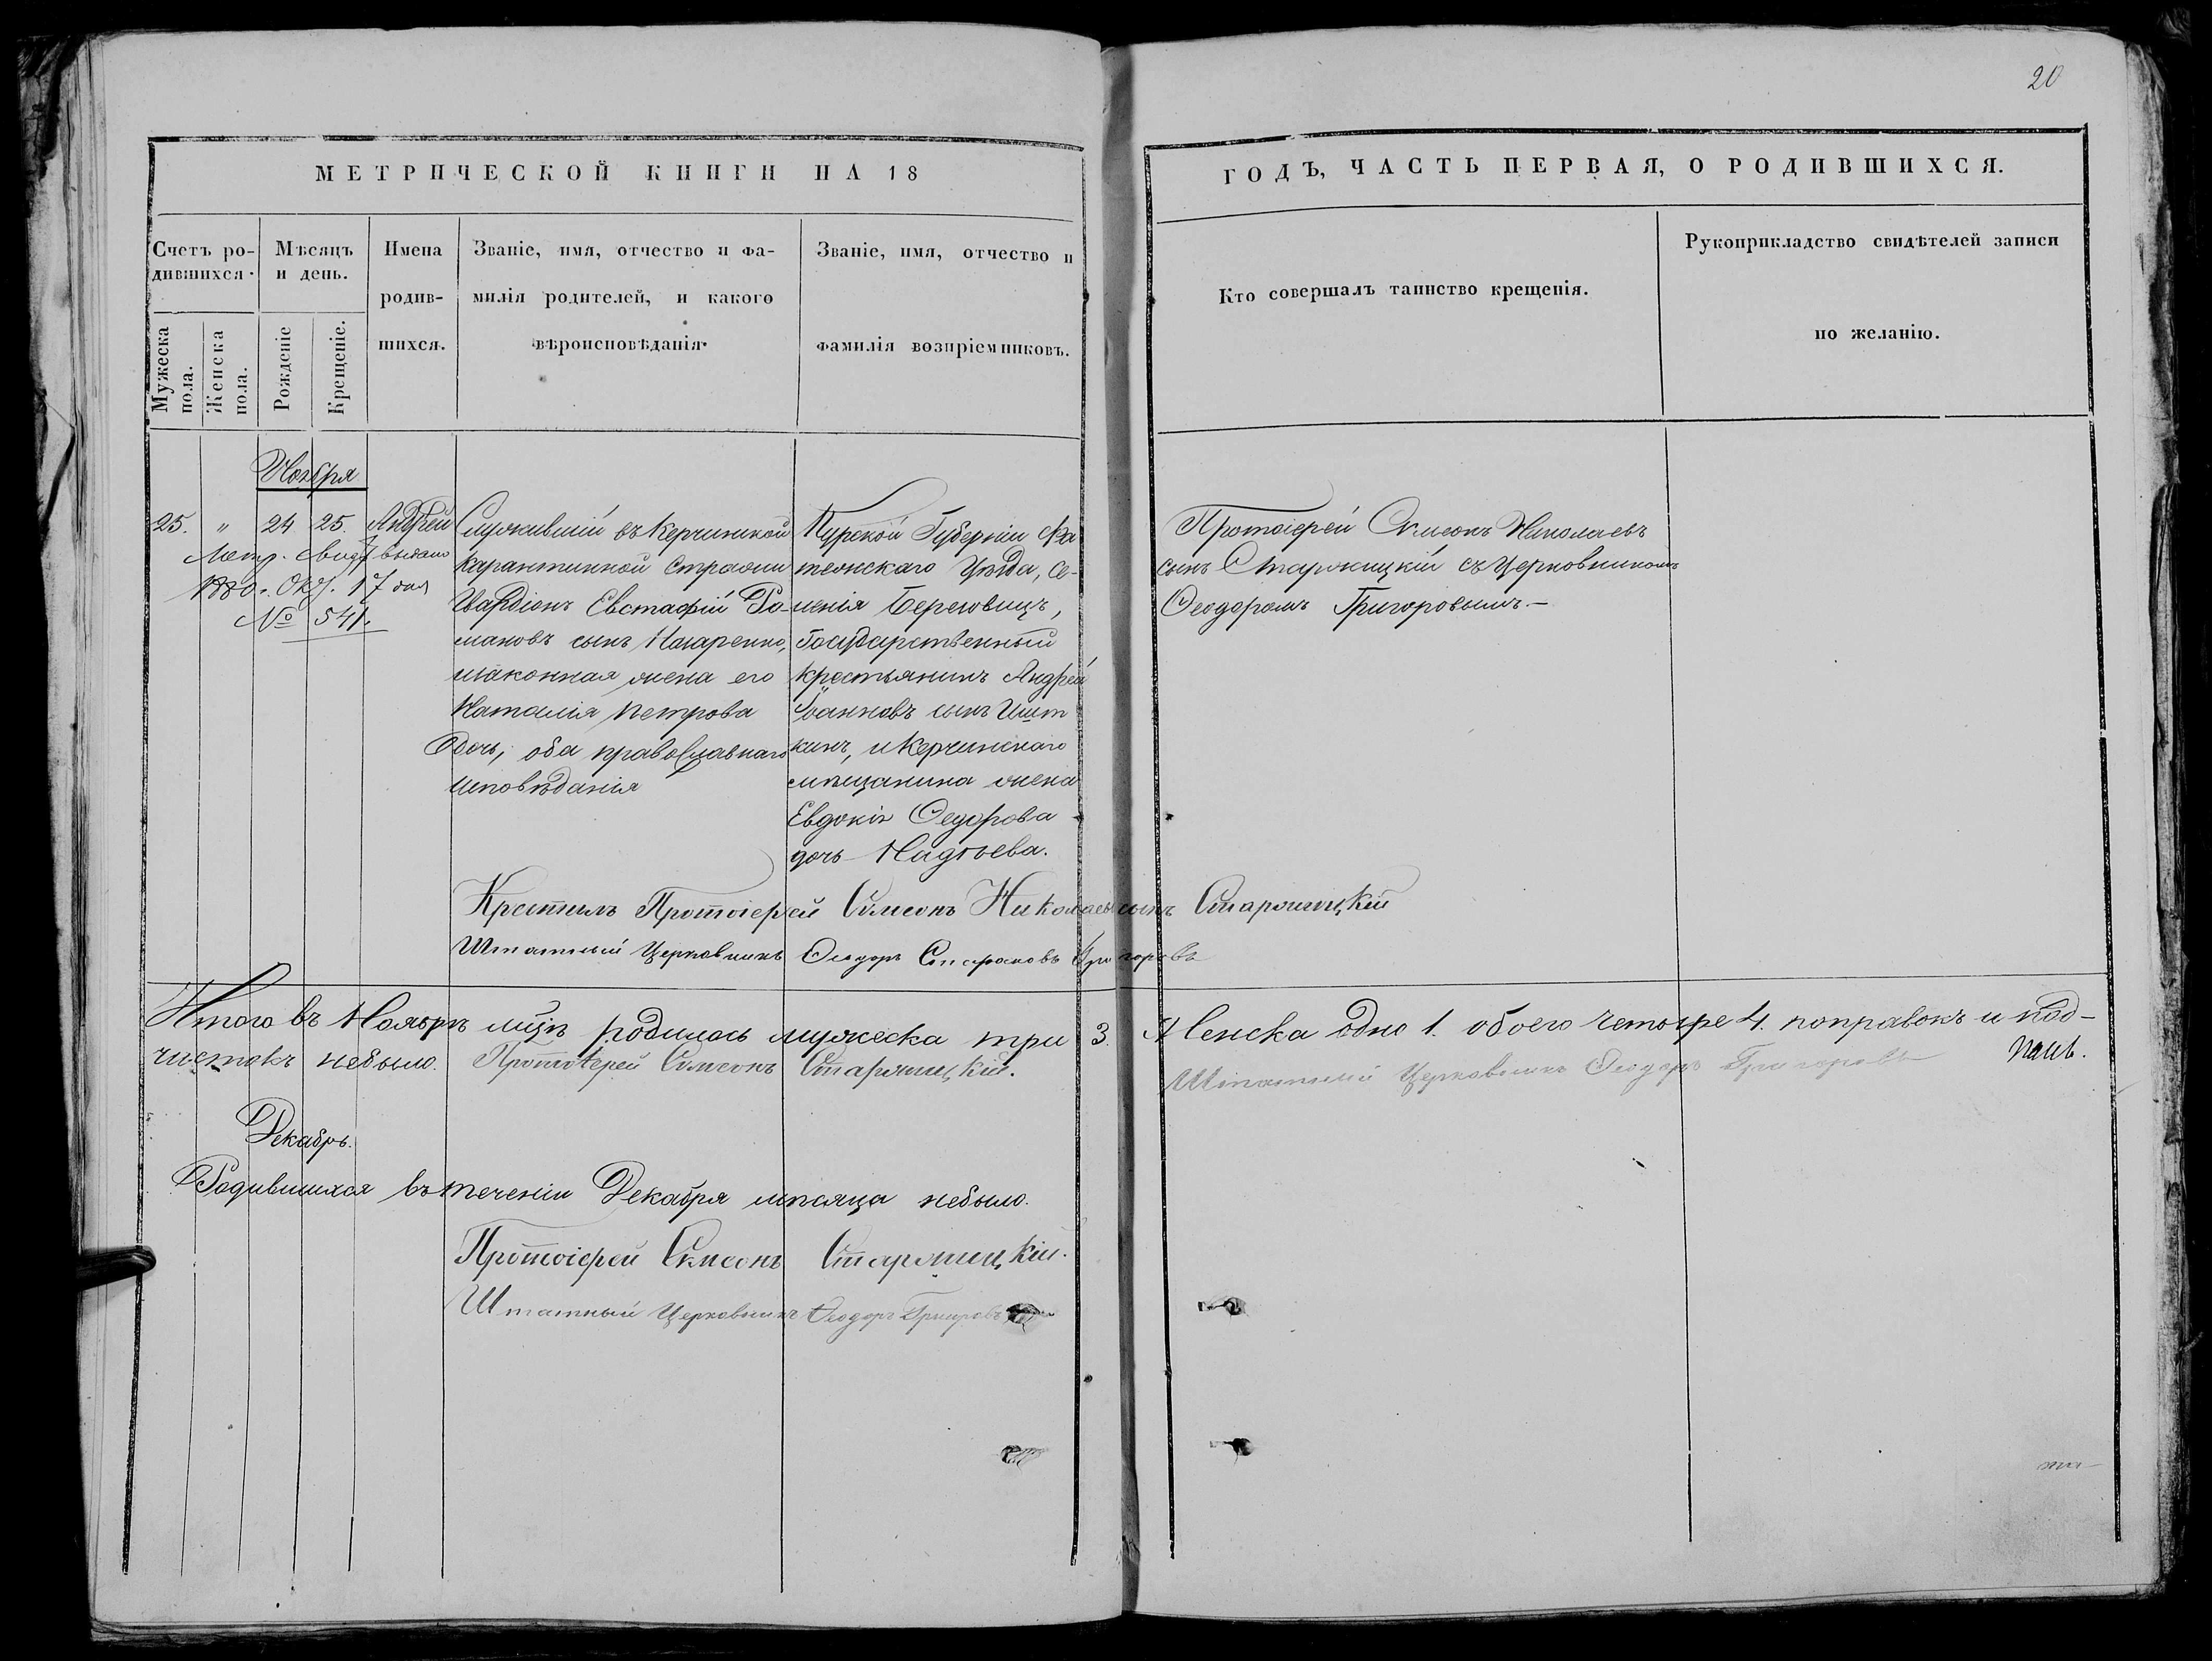 20
МЕТРИЧЕСКОЙ КНИГИ НА 18
ГОДЪ, ЧАСТЬ ПЕРВАЯ, О РОДИВШИХСЯ.
Счетъ ро-
дившихся.
Мужеска
пола.
Женска
пола.
Мѣсяцъ
и день.
Рожденіе
Крещеніе.
Имена
родив-
шихся.
Званіе, имя, отчество и фа-
милія родителей, и какого
вѣроисповѣданія.
Званіе, имя, отчество и
фамилія воспріемниковъ.
Кто совершалъ таинство крещенія.
Рукоприкладство свидѣтелей записи
по желанію.
Ноября
25. " 24 25. Андрей
Метр. свид. выдано
1880 г. Окт. 17 дня
№ 541.
Служившій въ Керчинской
карантинной Стражи
Гвардіонъ Евстафій Ро-
мановъ сынъ Назаренко,
законная жена его
Наталія Петрова
дочь, оба православнаго
исповѣданія
Курской Губерніи Фа
тежскаго Уѣзда, се-
ленія
Государственный
крестьянинъ Андрей
Іоанновъ сынъ
кинъ, и Керчинскаго
мѣщанина жена
Евдокія Ѳедорова
дочь
Протоіерей Симеонъ Николаевъ
сынъ Старжицкій съ Церковникомъ
Ѳеодоромъ Григоровымъ.-
Крестилъ Протоіерей Симеонъ Николаевъ сынъ Старжицкій
Штатный Церковникъ Ѳеодоръ Григоровъ
Итого въ Ноябрѣ мцѣ родилось мужеска три 3. Женска одно 1. обоего четыре 4. поправокъ и под-
чистокъ небыло. Протоіерей Симеонъ Старжицкій.
Штатный Церковникъ Ѳеодоръ Григоровъ
Декабрь.
Родившихся въ теченіи Декабря мѣсяца небыло.
Протоіерей Симеонъ Старжицкій.
Штатный Церковникъ Ѳеодоръ Григоровъ